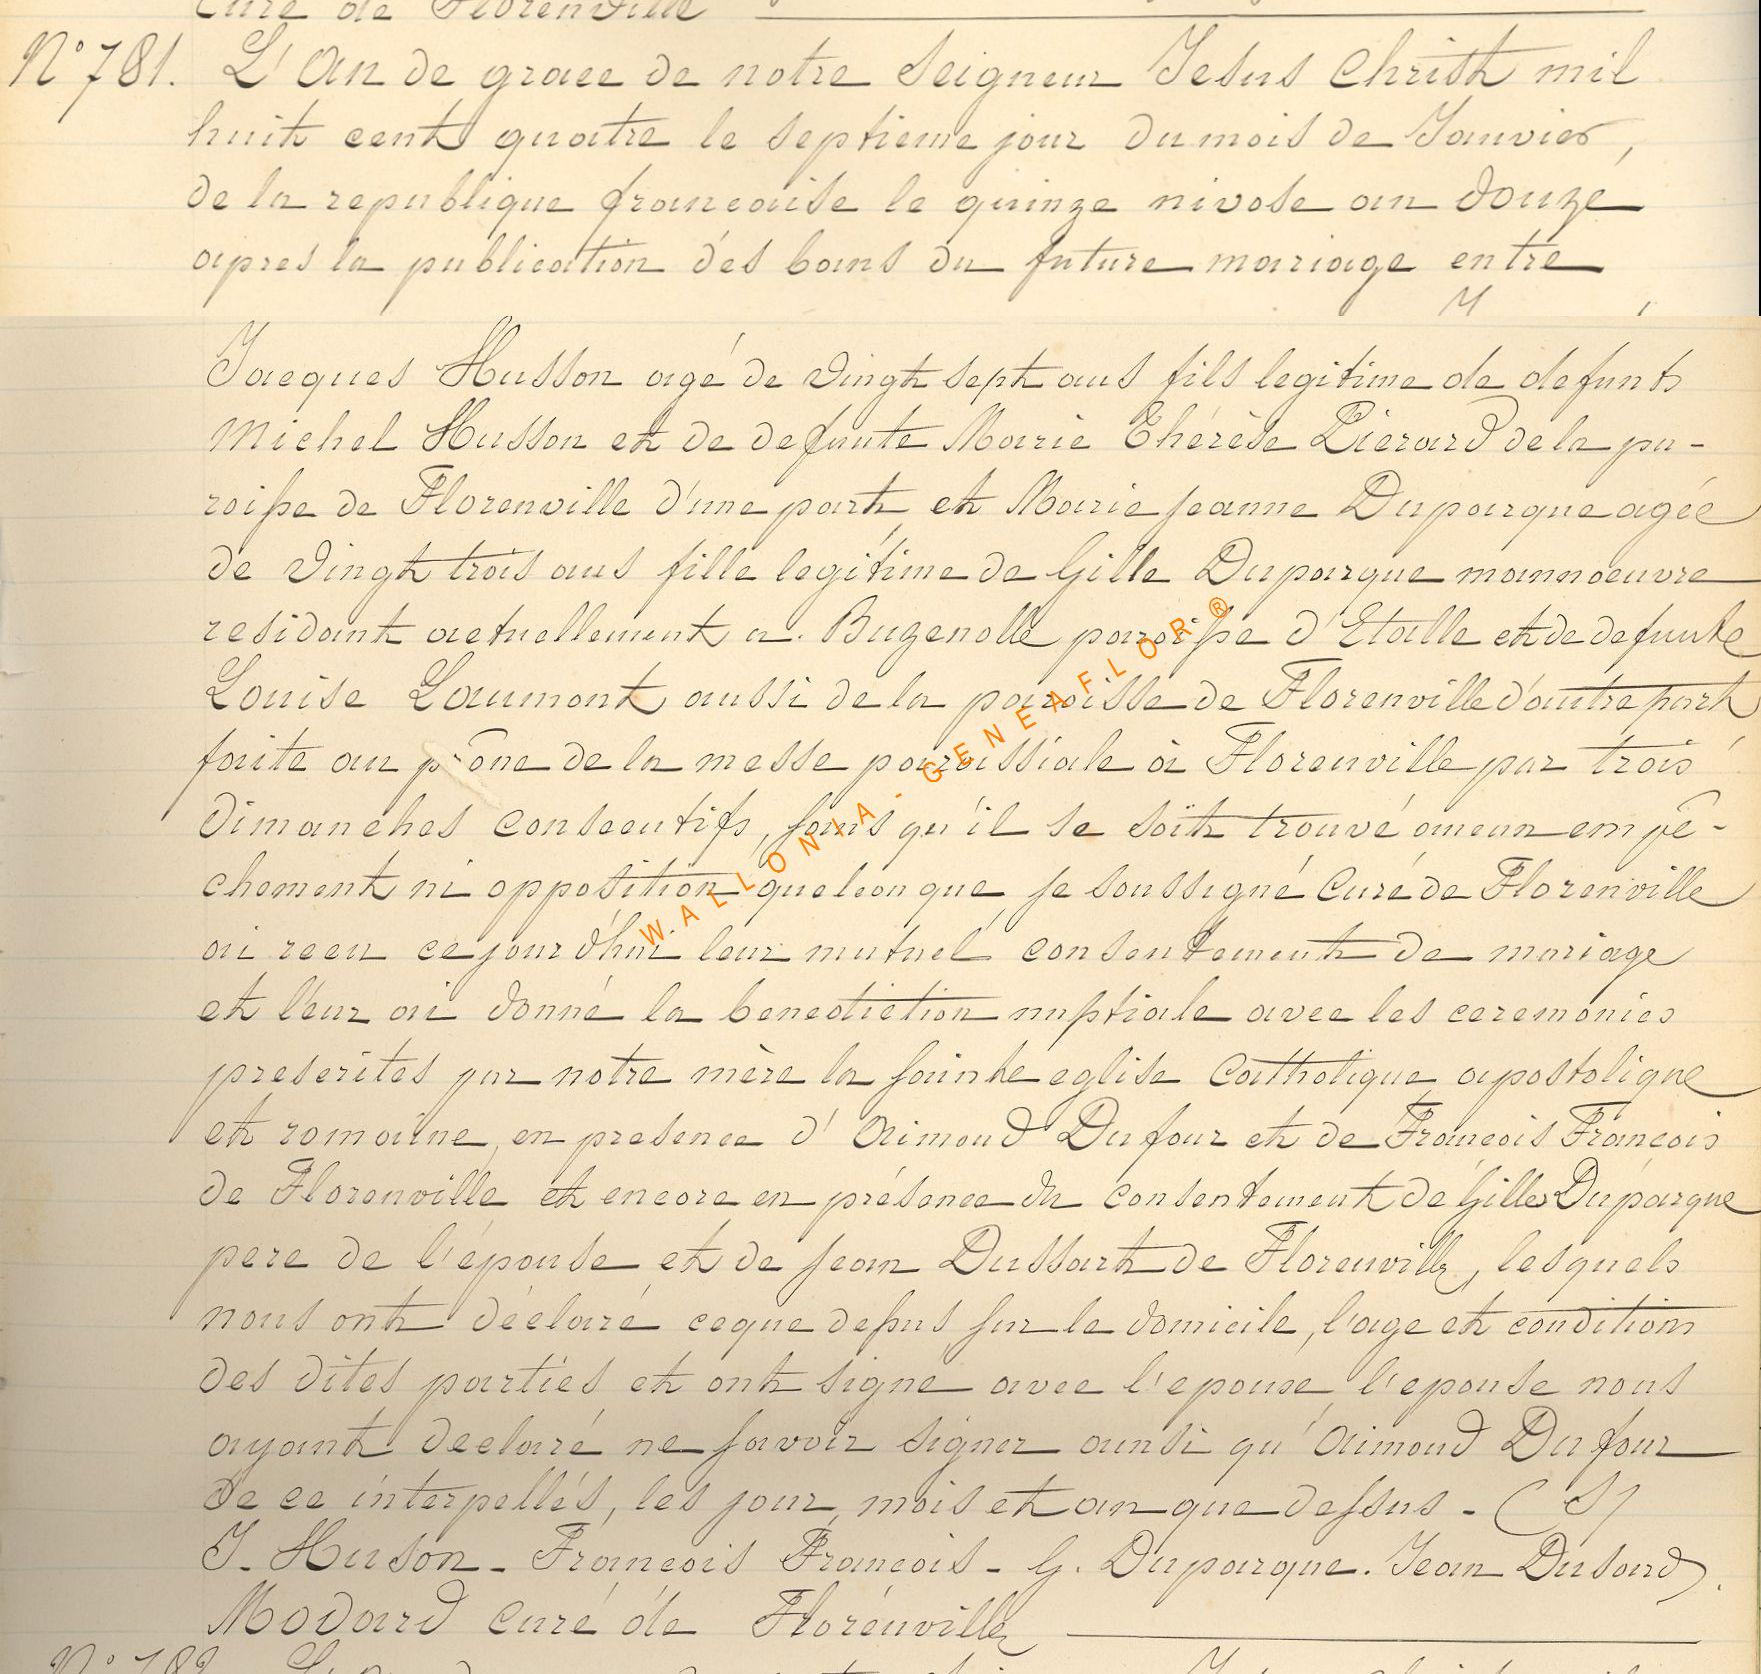 Curé de Florenville
N° 781. L'An de grace de notre Seigneur Jesus Christ mil
huit cent quatre le septieme jour du mois de Janvier,
de la republique francaise le quinze nivose an douze
apres la publication des bans du future mariage entre
Jacques Husson agé de vingt sept ans fils legitime de defunt
Michel Husson et de defunte Marie Thérèse Pierard de la pa-
roisse de Florenville d'une part et Marie Jeanne Duparque agée
de vingt trois ans fille legitime de Gille Duparque mannoeuvre
residant actuellement a. Buzenolle paroisse d'Etalle et de defunte
Louise Laumont aussi de la paroisse de Florenville d'autre part
faite au prône de la messe paroissiale à Florenville par trois
dimanches consecutifs, sans qu'il se soit trouvé aucun empê-
chement ni opposition quelconque je soussigné Curé de Florenville
ai recu ce jour d'hui leur mutuel consentement de mariage
et leur ai donné la benediction nuptiale avec les ceremonies
prescrites par notre mère la sainte eglise Catholique apostolique
et romaine, en presence d'Aimond Dufour et de Francois Francois
de Florenville et encore en présence du consentement de Gilles Duparque
pere de l'épouse et de Jean Dussart de Florenville, lesquels
nous ont déclaré ce que dessus sur le domicile, l'age et condition
des dites parties et ont signe avec l'epoux, l'epouse nous
ayant declaré ne savoir signer ainsi qu'Aimond Dufour
de ce interpellés, les jour, mois et an que dessus - (S)
J. Huson - Francois Francois - G. Duparque. Jean Dusard).
Modard curé de Florenville
N° 782
WALLONIA-GENEAFLOR®